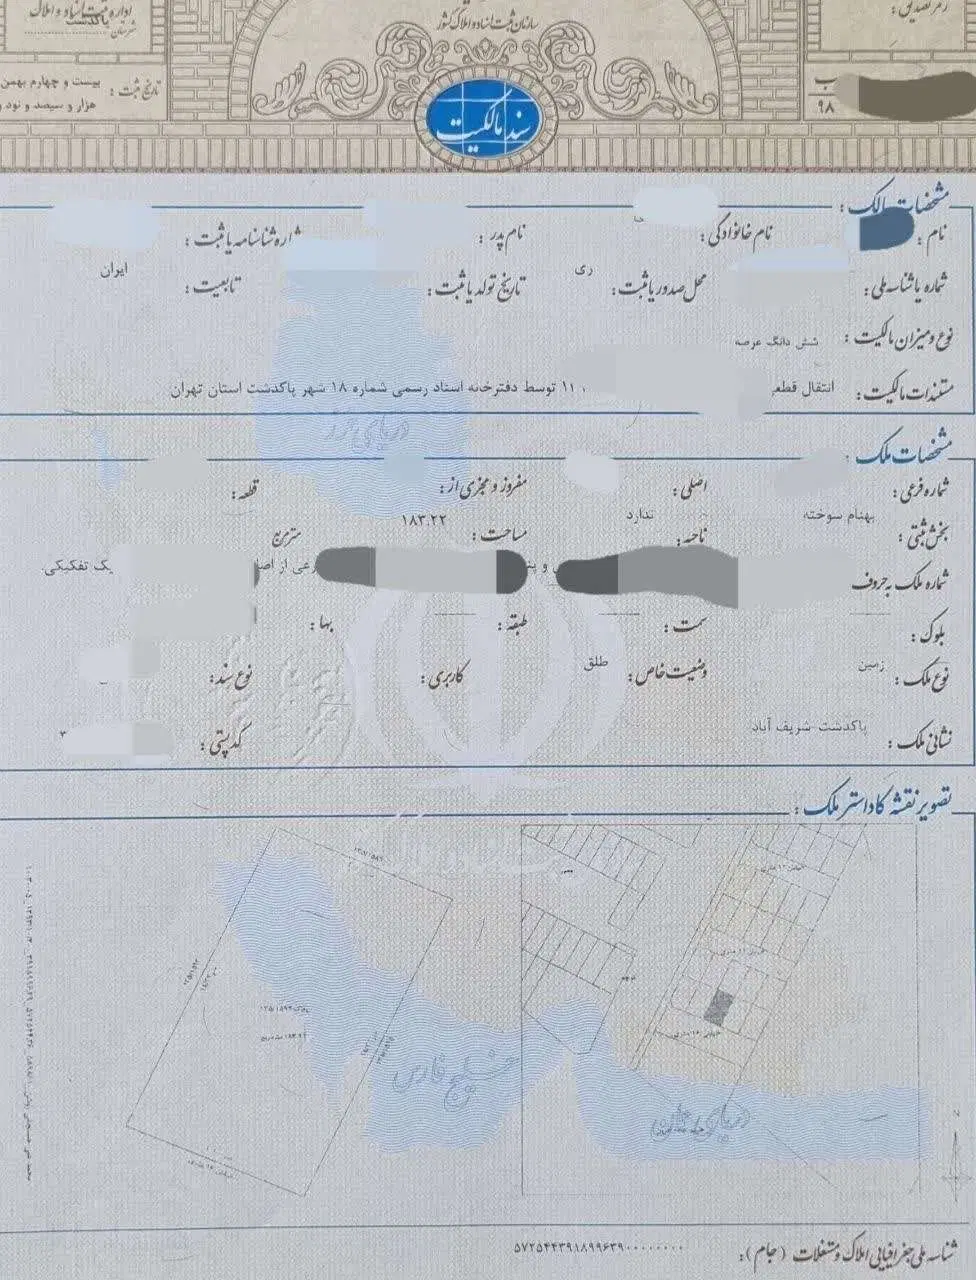 سازمان ثبت اسناد و املاک کشور
اداره ثبت اسناد و املاک
شهرستان پاکدشت
رمز تصدیق :
تاریخ ثبت : بیست و چهارم بهمن
هزار و سیصد و نود و
ب
۹۸
سند مالکیت
مشخصات مالک :
نام : نام خانوادگی : نام پدر : شماره شناسنامه یا ثبت :
شماره یا شناسه ملی : محل صدور یا ثبت : ری تاریخ تولد یا ثبت : تابعیت : ایران
نوع و میزان مالکیت : شش دانگ عرصه
مستندات مالکیت : انتقال قطعی ۱۱ توسط دفترخانه اسناد رسمی شماره ۱۸ شهر پاکدشت استان تهران
دریای خزر
مشخصات ملک :
شماره فرعی : اصلی : مفروز و مجزی از : قطعه :
بخش ثبتی : بهنام سوخته ناحیه : ندارد مساحت : ۱۸۳.۲۲ مترمربع
شماره ملک به حروف و رعی از اصل یک تفکیکی.
بلوک : سمت : طبقه : بها :
نوع ملک : زمین وضعیت خاص : طلق کاربری : نوع سند :
نشانی ملک : پاکدشت-شریف آباد کدپستی : ۳
تصویر نقشه کاداستر ملک :
خلیج فارس
دریای عمان
شناسه ملی جغرافیایی املاک و مستغلات (جام) : ۵۷۲۵۴۴۳۹۱۸۹۹۶۳۹۰۰۰۰۰۰۰۰